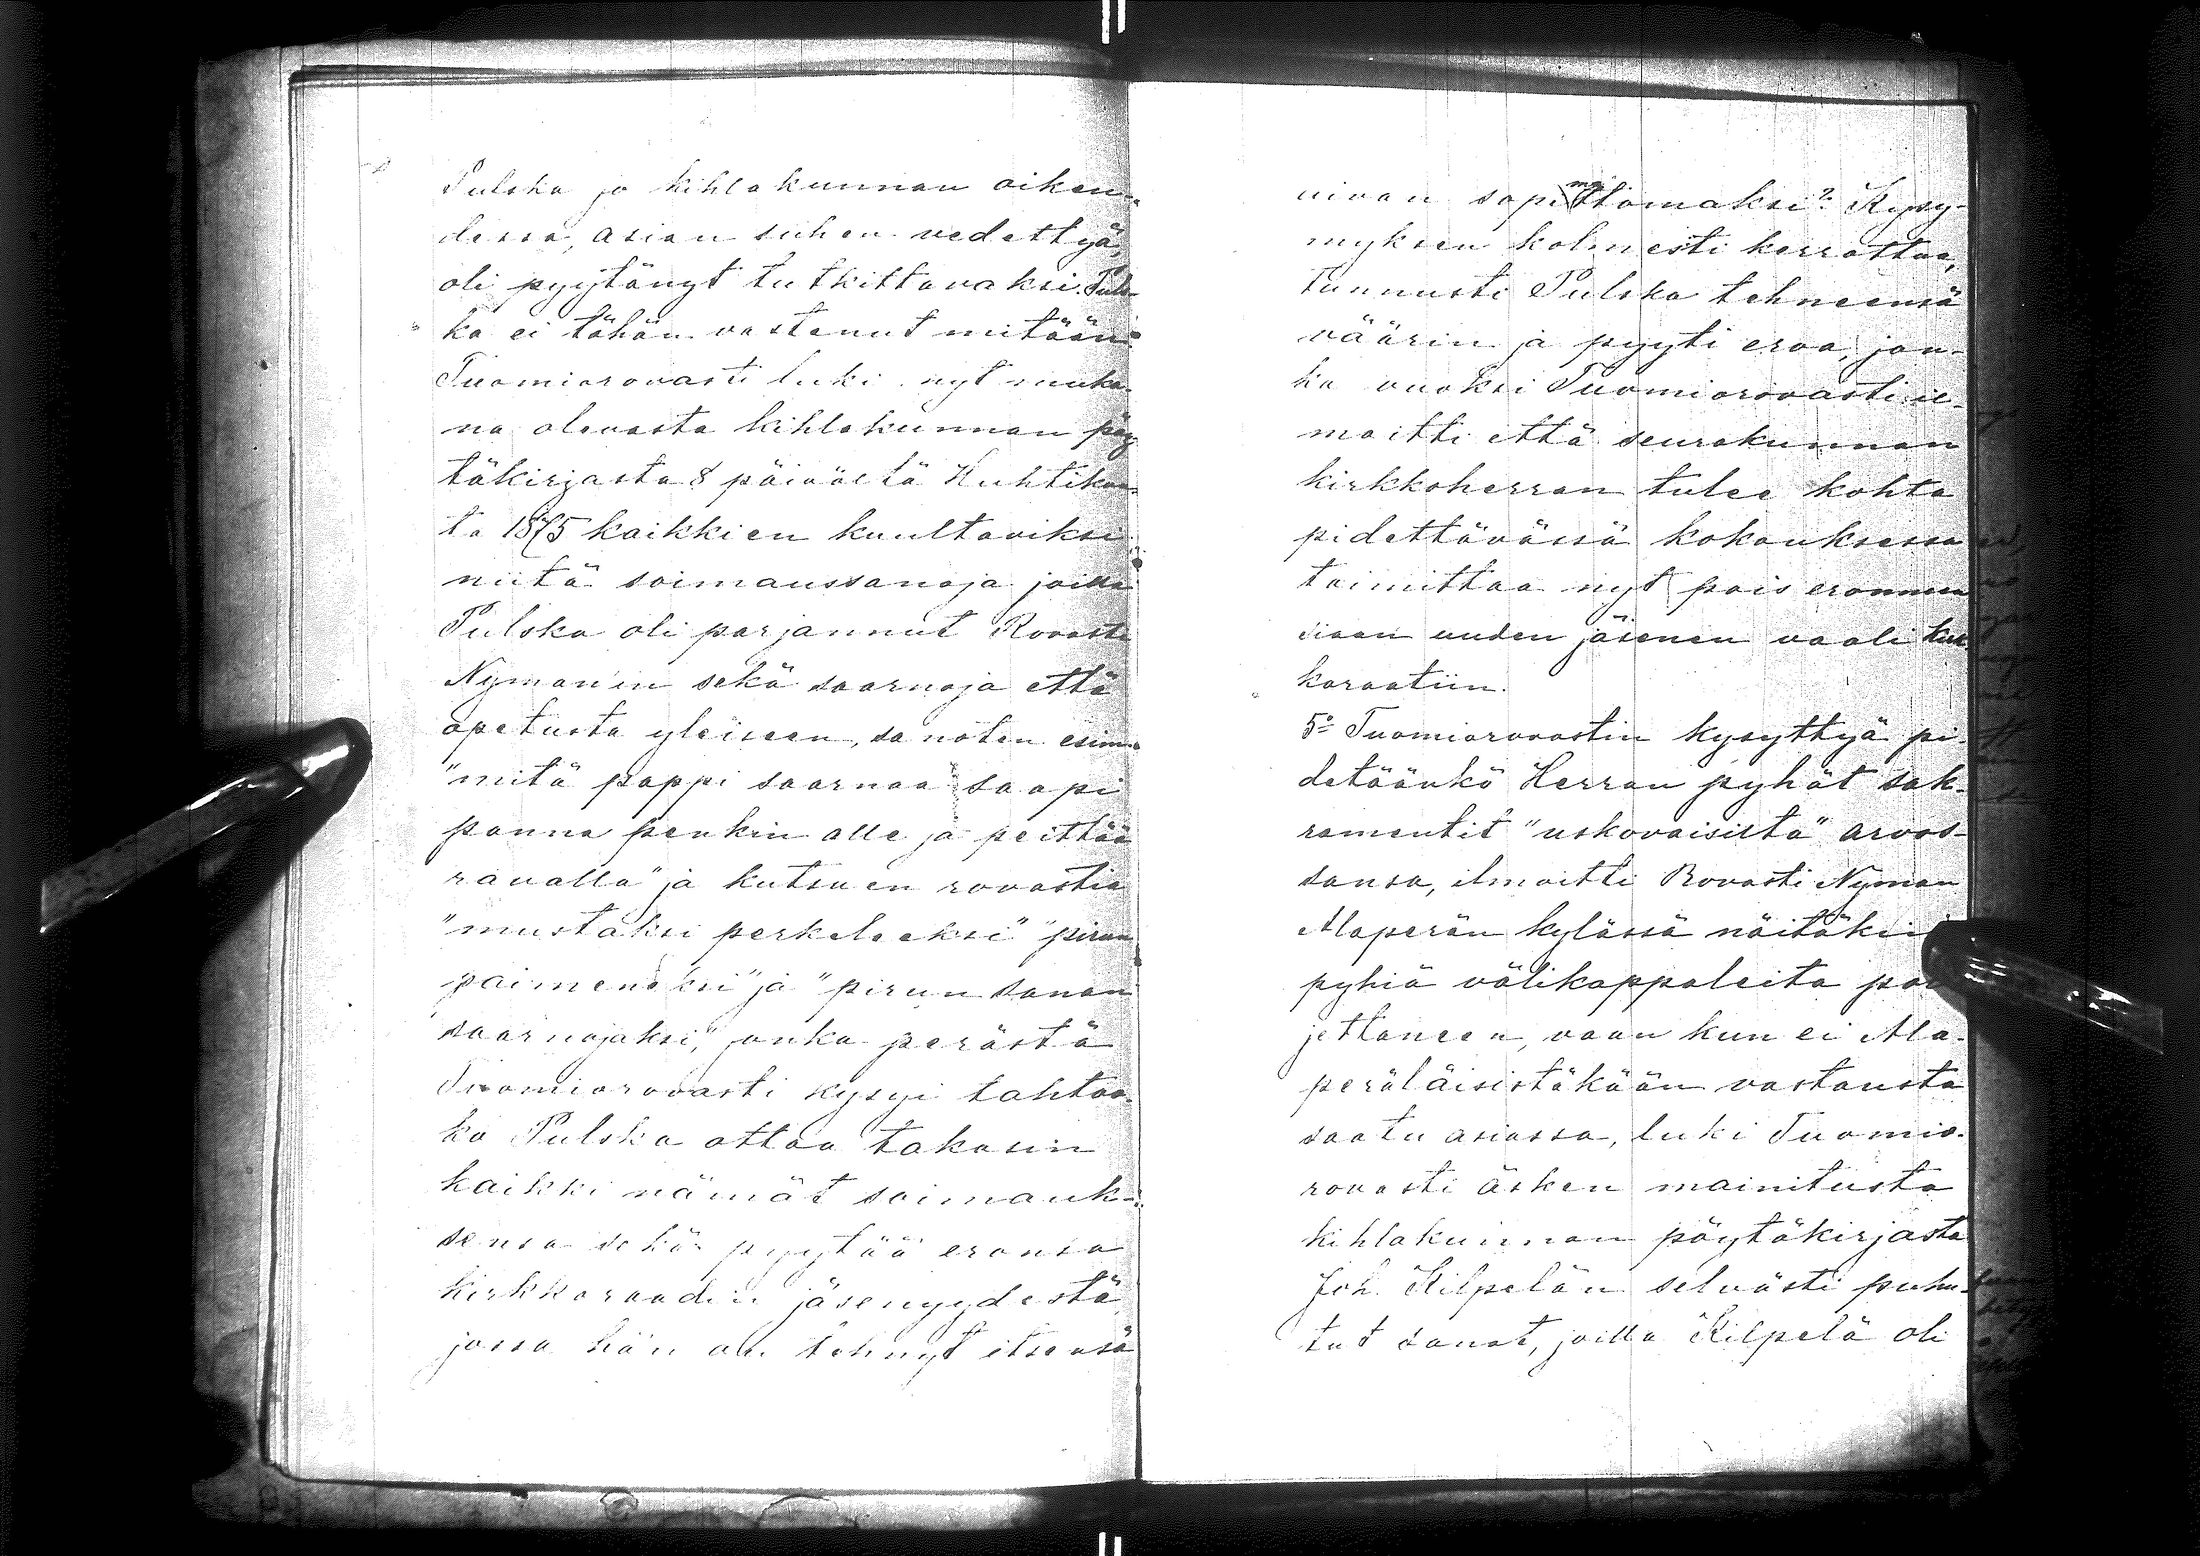 Pulska jo kihlakunnan oikeu-
dessa, asian siihen vedettyä,
oli pyytänyt tutkittavaksi. Puls-
ka ei tähän vastanut mitään.
Tuomiorovasti luki nyt muka-
na olevasta kihlakunnan pöy
täkirjasta 8 päivältä Huhtikuu-
ta 1875 kaikkien kuultaviksi
niitä soimaussanoja joilla
Pulska oli parjannut Rovasti
Nyman'in sekä saarnoja että
opetusta yleiseen, sanoten esim.
"mitä pappi saarnaa saapi
panna penkin alle ja peittää
ravalla" ja kutsuen rovastia
"mustaksi perkeleeksi" "pirun
paimeneksi" ja "pirun sanan
saarnajaksi," jonka perästä
Tuomiorovasti kysyi tahtoo-
ko Pulska ottaa takasin
kaikki nämät soimauk-
sensa sekä pyytää eronsa
kirkkoraadin jäsenyydestä
jossa hän on tehnyt itsensä
aivan sopimattomaksi? Kysy-
myksen kolmesti kerrottua,
tunnusti Pulska tehneensä
väärin ja pyyti eroa, jon-
ka vuoksi Tuomiorovasti il-
moitti että seurakunnan
kirkkoherran tulee kohta
pidettävässä kokouksessa
toimittaa nyt pois eronneen
siaan uuden jäsenen vaali kirk
koraatiin.
5:o Tuomiorovastin kysyttyä pi-
detäänkö Herran pyhät sak-
ramentit "uskovaisilta" arvos-
sansa, ilmoitti Rovasti Nyman
Alaperän kylässä näitäkin
pyhiä välikappaleita
jettaneen, vaan kun ei Ala-
peräläisistäkään vastausta
saatu asiassa, luki Tuomio-
rovasti äsken mainitusta
kihlakunnan pöytäkirjasta
Joh. Kilpelän selvästi puhu-
tut sanat, joilla Kilpelä oli